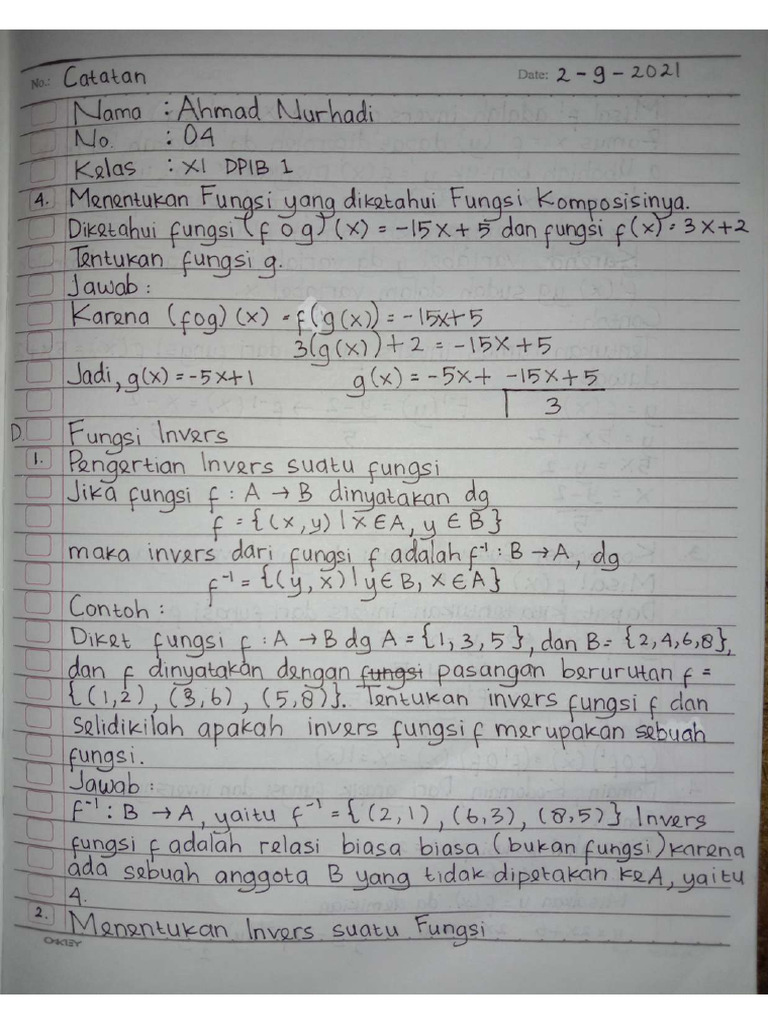 No.: Catatan Date: 2-9-2021
Nama : Ahmad Nurhadi
No. : 04
Kelas : XI DPIB 1
4. Menentukan Fungsi yang diketahui Fungsi Komposisinya.
Diketahui fungsi (fog)(x) = -15x+5 dan fungsi f(x) = 3x+2
Tentukan fungsi g.
Jawab :
Karena (fog)(x) = f(g(x)) = -15x+5
3(g(x))+2 = -15x+5
Jadi, g(x) = -5x+1 g(x) = -5x+ -15x+5
3
D. Fungsi Invers
1. Pengertian Invers suatu fungsi
Jika fungsi f : A → B dinyatakan dg
f = {(x,y) | x ∈ A, y ∈ B}
maka invers dari fungsi f adalah f⁻¹ : B → A, dg
f⁻¹ = {(y,x) | y ∈ B, x ∈ A}
Contoh :
Diket fungsi f : A → B dg A = {1,3,5}, dan B = {2,4,6,8},
dan f dinyatakan dengan fungsi pasangan berurutan f =
{(1,2), (3,6), (5,8)}. Tentukan invers fungsi f dan
selidikilah apakah invers fungsi f merupakan sebuah
fungsi.
Jawab :
f⁻¹ : B → A, yaitu f⁻¹ = {(2,1), (6,3), (8,5)} Invers
fungsi f adalah relasi biasa biasa (bukan fungsi) karena
ada sebuah anggota B yang tidak dipetakan ke A, yaitu
4.
2. Menentukan Invers suatu Fungsi
OAKLEY